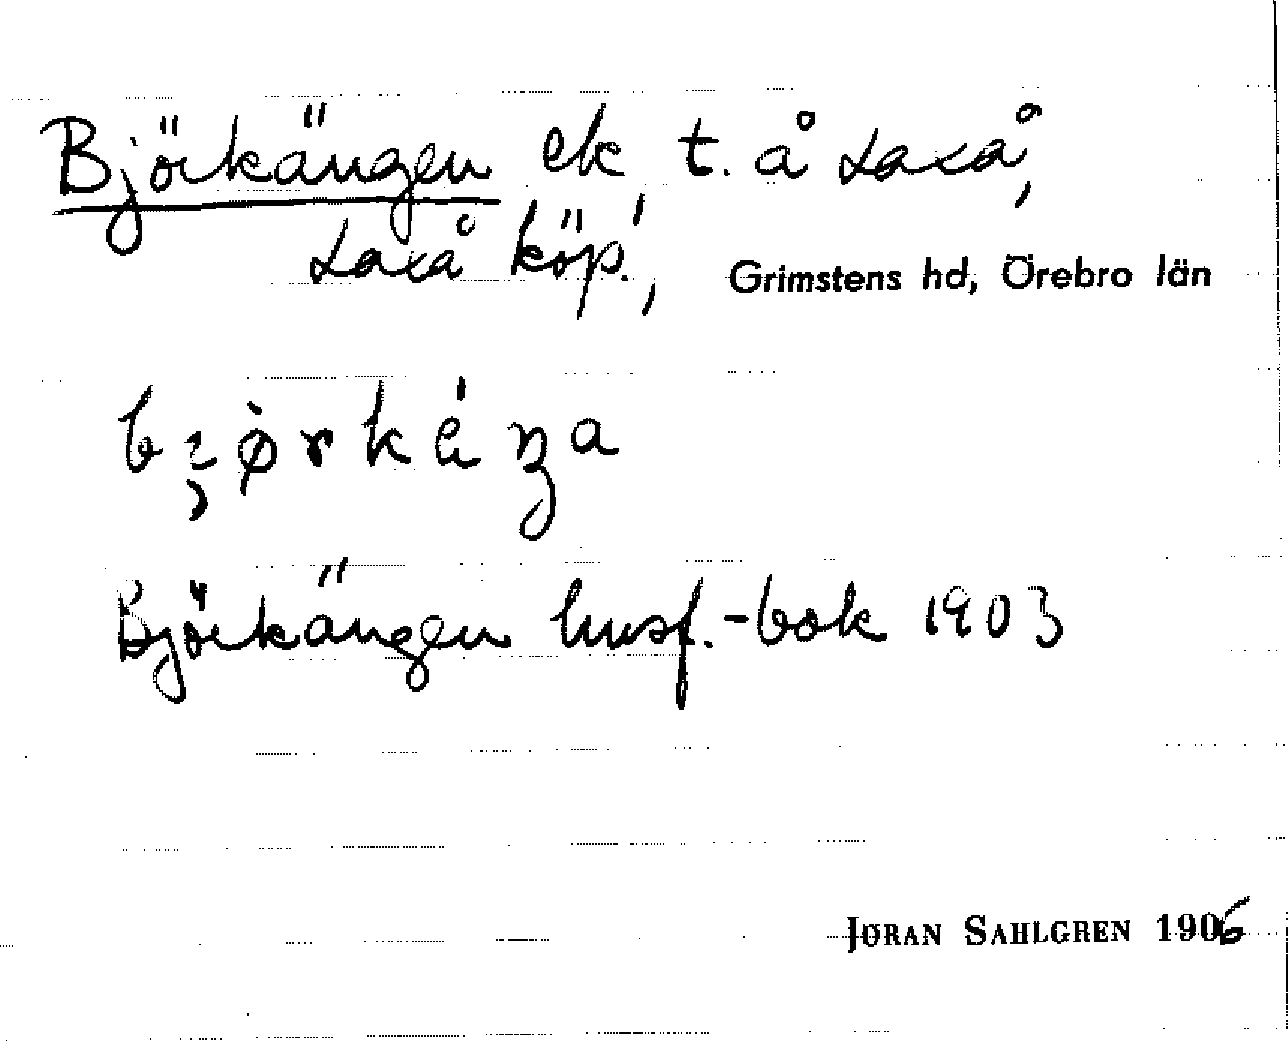 Björkängen ek t. å Laxå,
Laxå köp., Grimstens hd, Örebro län
Björkängen husf.-bok 1903
JÖRAN SAHLGREN 1906